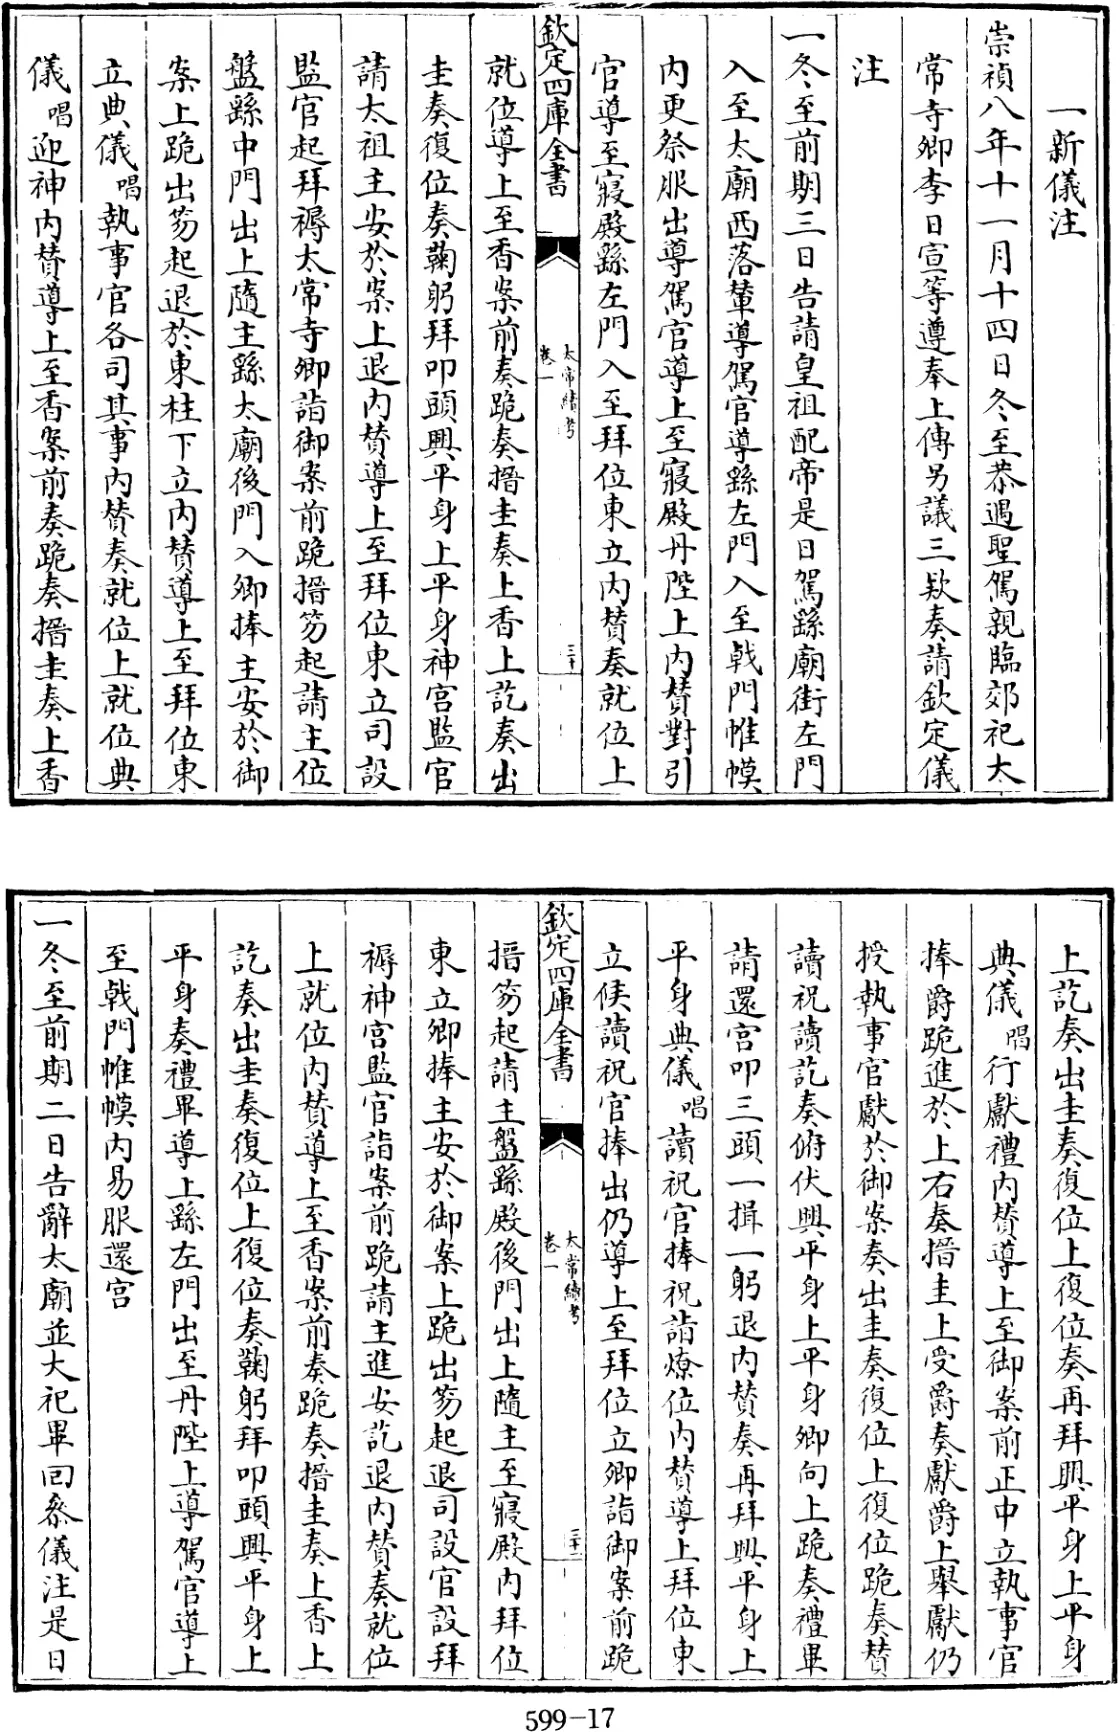 一新儀注
崇禎八年十一月十四日冬至恭遇聖駕親臨郊祀太
常寺卿李日宣等遵奉上傳另議三款奏請欽定儀
注
一冬至前期三日告請皇祖配帝是日駕繇廟街左門
入至太廟西落輦導駕官導繇左門入至戟門帷幙
內更祭服出導駕官導上至寢殿丹陛上內賛對引
官導至寢殿繇左門入至拜位東立內賛奏就位上
欽定四庫全書
太常續考
卷一
三十
就位導上至香案前奏跪奏搢圭奏上香上訖奏出
圭奏復位奏鞠躬拜叩頭興平身上平身神宮監官
請太祖主安於案上退內賛導上至拜位東立司設
監官起拜褥太常寺卿詣御案前跪搢笏起請主位
盤繇中門出上隨主繇太廟後門入卿捧主安於御
案上跪出笏起退於東柱下立內賛導上至拜位東
立典儀唱執事官各司其事內賛奏就位上就位典
儀唱迎神內賛導上至香案前奏跪奏搢圭奏上香
上訖奏出圭奏復位上復位奏再拜興平身上平身
典儀唱行獻禮內賛導上至御案前正中立執事官
捧爵跪進於上右奏搢圭上受爵奏獻爵上舉獻仍
授執事官獻於御案奏出圭奏復位上復位跪奏賛
讀祝讀訖奏俯伏興平身上平身卿向上跪奏禮畢
請還宮叩三頭一揖一躬退內賛奏再拜興平身上
平身典儀唱讀祝官捧祝詣燎位內賛導上拜位東
立俟讀祝官捧出仍導上至拜位立卿詣御案前跪
欽定四庫全書
太常續考
卷一
三十一
搢笏起請主盤繇殿後門出上隨主至寢殿內拜位
東立卿捧主安於御案上跪出笏起退司設官設拜
褥神宮監官詣案前跪請主進安訖退內賛奏就位
上就位內賛導上至香案前奏跪奏搢圭奏上香上
訖奏出圭奏復位上復位奏鞠躬拜叩頭興平身上
平身奏禮畢導上繇左門出至丹陛上導駕官導上
至戟門帷幙內易服還宮
一冬至前期二日告辭太廟並大祀畢回叅儀注是日
599-17